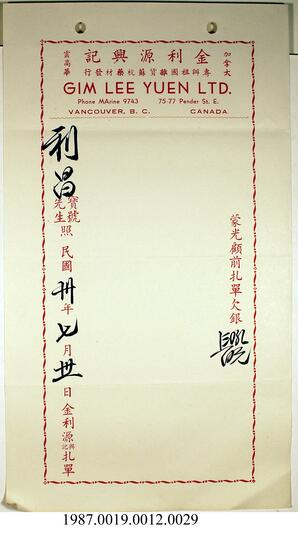 加拿大
金利源興記
專辦祖國雜貨蘇杭藥材發行
雲高華
GIM LEE YUEN LTD.
Phone MArine 9743 75-77 Pender St. E.
VANCOUVER, B. C. CANADA
蒙光顧前扎單欠銀
利昌寶號先生照民國卅年七月卅日金利源興記扎單
1987.0019.0012.0029